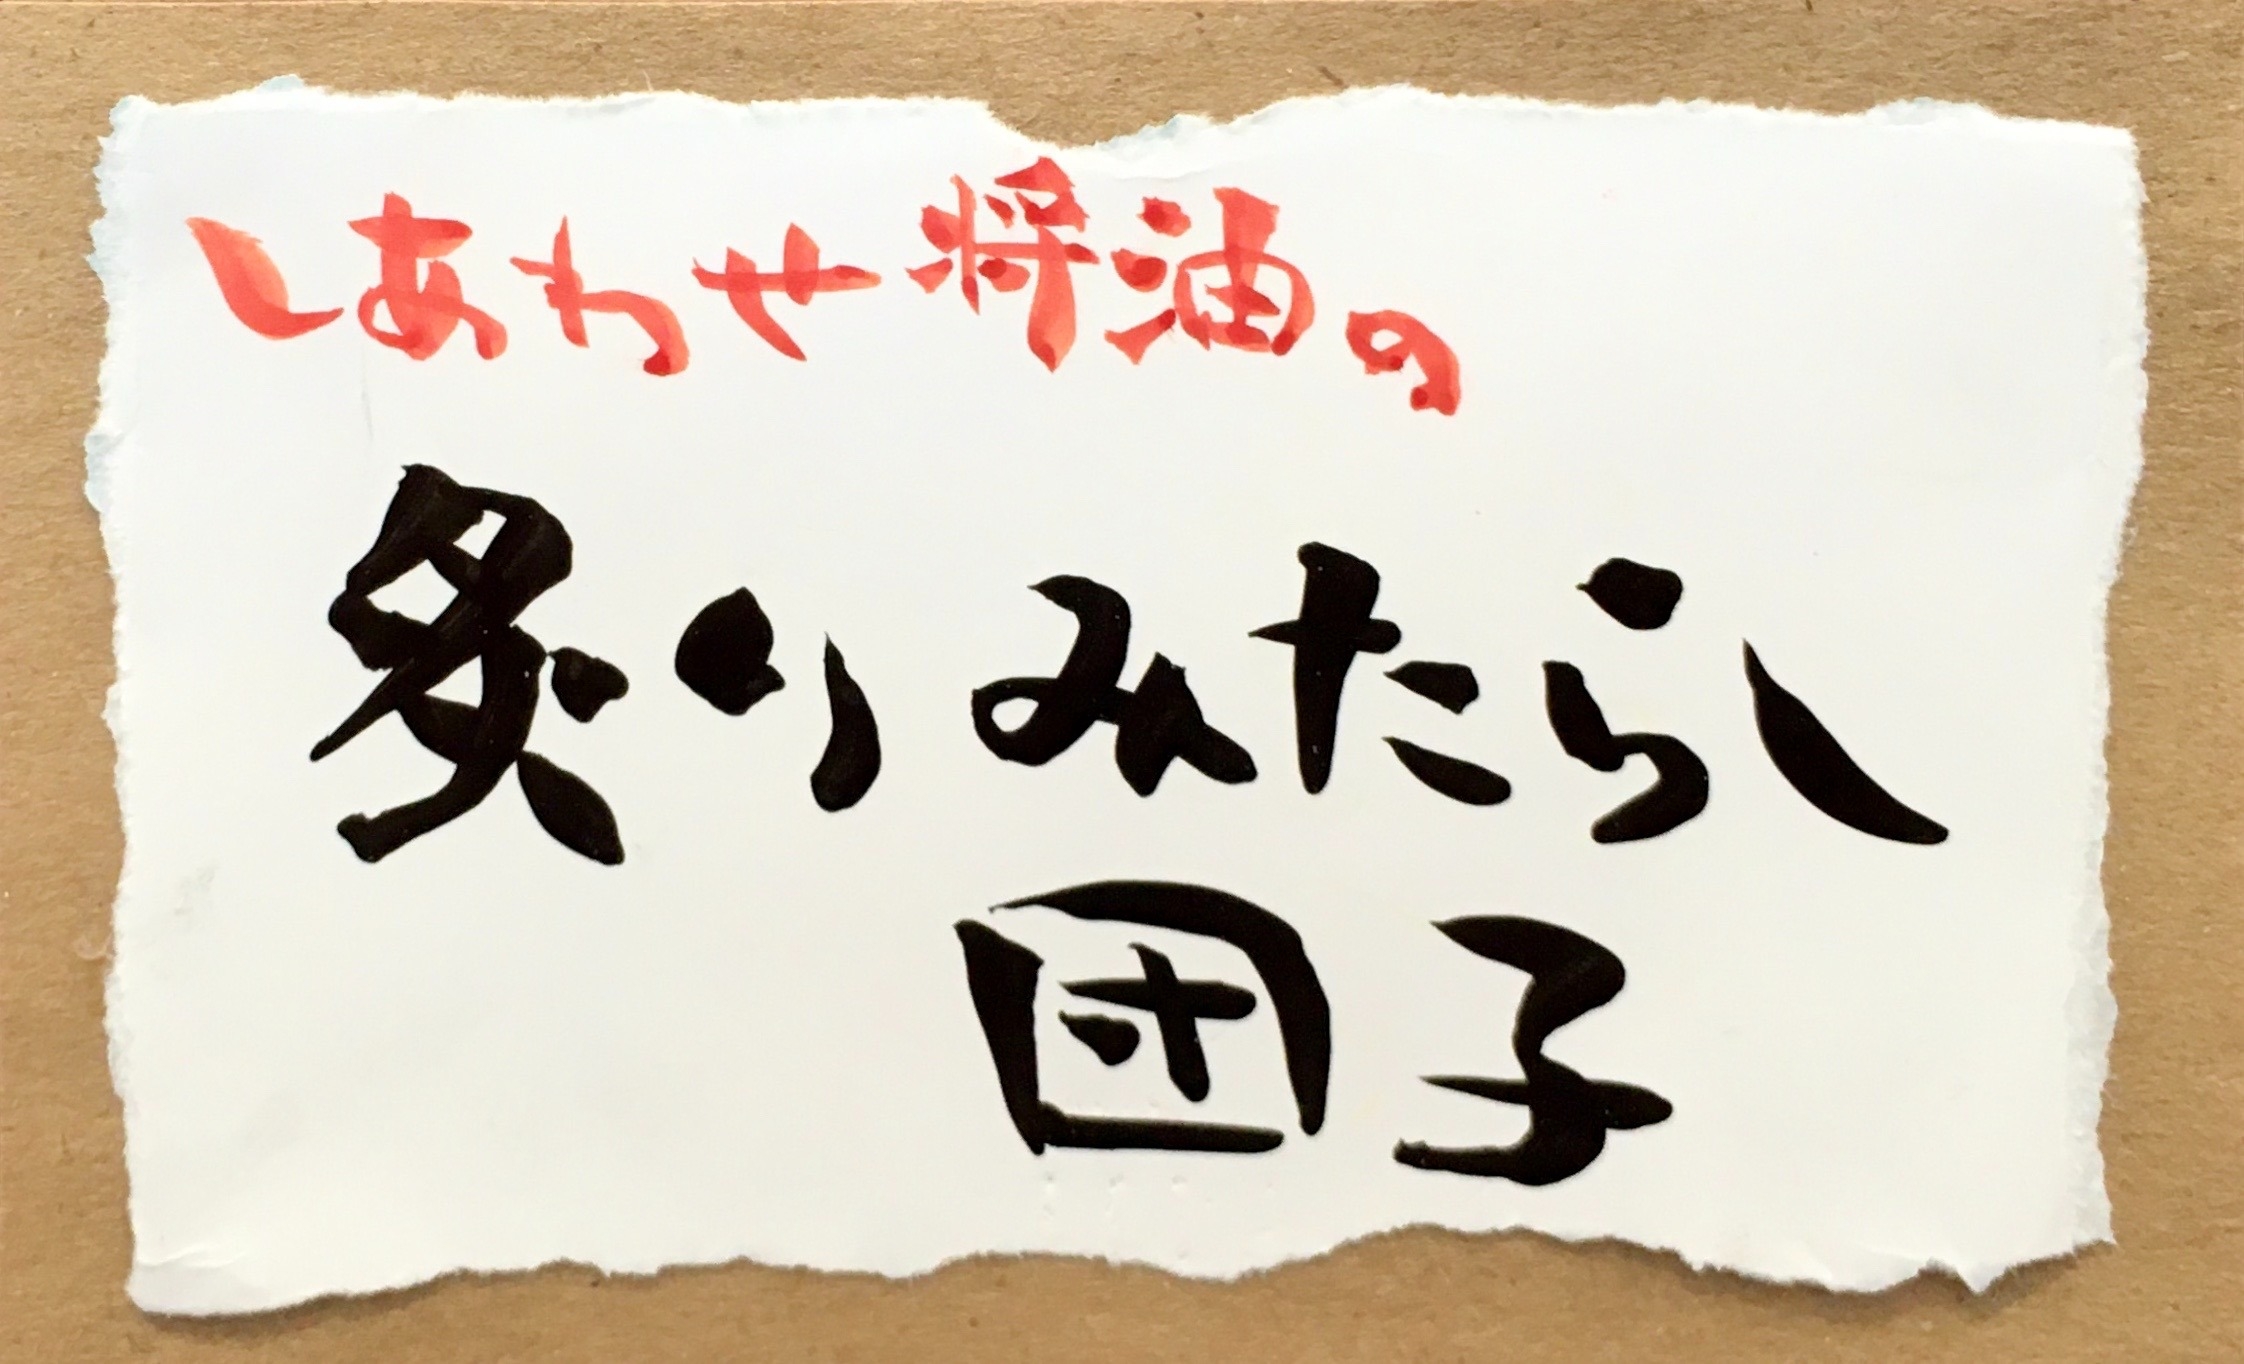 しあわせ将油の
炙りみたらし
団子